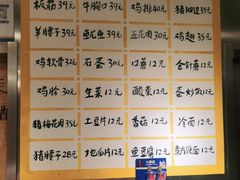 板筋39元 牛胸口39元 鸡排40元 猪油边35元
羊脖子39元 鱿鱼39元 五花肉30元 鸡翅35元
鸡软骨32元 石蛋30元 口蘑12元 全针菇12元
鸡胗30元 生菜12元 酸菜12元 蛋炒饭12元
猪梅花肉35元 土豆片12元 香菇12元 冷面12元
猪脖子28元 地瓜片12元 鱼豆腐12元 方便面12元